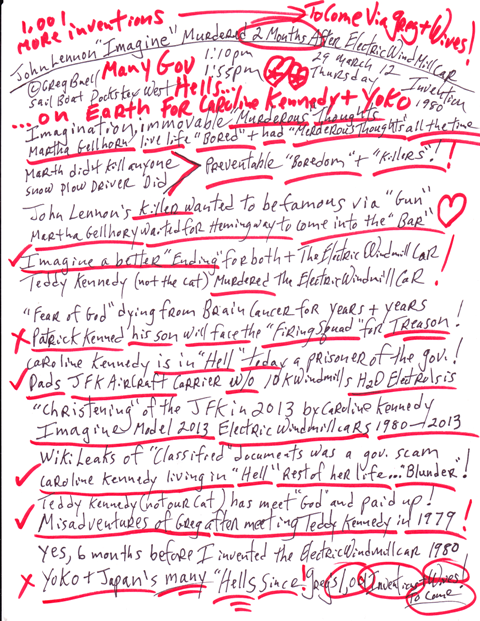 1,001 MORE inventions → To Come Via Greg + Wives!
John Lennon "Imagine" Murdered 2 Months After Electric WindMill Car
©Greg Buell Many Gov 1:10pm 29 March 12 Invention
Sail Boat Docks Key West Hells... 1:55pm Thursday 1980
...on Earth For Caroline Kennedy + YOKO
Imagination, immovable Murderous Thoughts
Martha Gellhorn live life "Bored" + had "Merderous Thoughts all the time
Marth didn't Kill anyone > Preventable "Boredom" + "Killers"!
Snow plow Driver Did
John Lennon's Killer wanted to be famous via "Gun"
Martha Gellhory waited for Hemingway to come into the "Bar"
Imagine a better "Ending" for both + The Eletric Windmill Car
Teddy Kennedy (not the cat) Murdered The Electric Windmill Car!
"Fear of God" dying from Brain Cancer for years + years
Patrick Kenned his son will face the "Firing Squad" for Treason!
Caroline Kennedy is in "Hell" today a prisoner of the gov.!
Dads JFK AirCraft Carrier w/o 10K Windmills H2D Eletrolsis
"Christening" of the JFK in 2013 by Caroline Kennedy
Imagine Model 2013 Electric Windmill Cars 1980→2013
Wiki Leaks of "Classified" documents was a gov. scam
Caroline Kennedy living in "Hell" Rest of her life..."Blunder"!
Teddy Kennedy (not our Cat) has meet "God" and paid up!
Misadventures of Greg after meeting Teddy Kennedy in 1979!
Yes, 6 months before I invented the Electric Windmill car 1980
Yoko + Japan's many "Hells Since! Greg's 1,001 Invention + Wives!
To Come